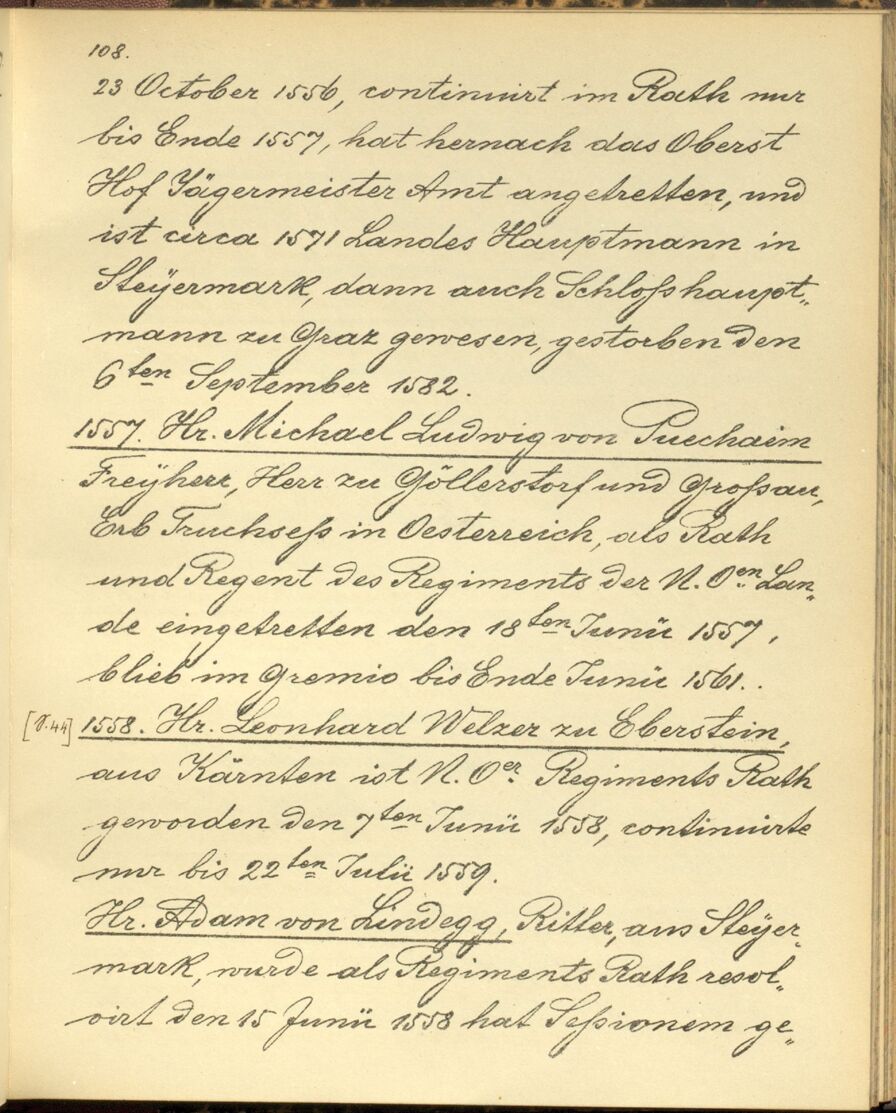 108.
23 October 1556, continuirt im Rath nur
bis Ende 1557, hat hernach das Oberst
Hof Jägermeister Amt angetretten, und
ist circa 1571 Landes Hauptmann in
Steÿermark, dann auch Schloßhaupt„
mann zu Graz gewesen, gestorben den
6ten September 1582.
1557. Hr. Michael Ludwig von Puechaim
Freÿherr, Herr zu Göllerstorf und Großau,
Erb Truchseß in Oesterreich, als Rath
und Regent des Regiments der N. Oen. Lan„
de eingetretten den 18ten Junii 1557,
blieb im Gremio bis Ende Junii 1561..
[S. 44] 1558. Hr. Leonhard Welzer zu Eberstein,
aus Kärnten ist N. Oer. Regiments Rath
geworden den 7ten Junii 1558, continuirte
nur bis 22ten Julii 1559.
Hr. Adam von Lindegg, Ritter, aus Steÿer„
mark, wurde als Regiments Rath resol„
virt den 15 Junii 1558 hat Seßionem ge„